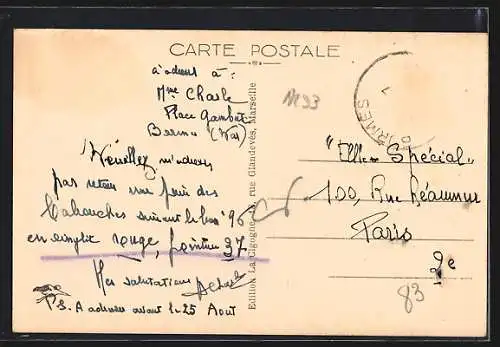 CARTE POSTALE
a adresser à :
Mme Charle
Place Gambetta
Bormes (Var)
Veuillez m'adresser
par retour une paire de
Babouches suivant le bon 96
en simplit rouge, pointure 37
Mes salutations ACharle
P.S. A adresser avant le 25 Août
Edition La Cigogne, rue Glandevès, Marseille
AR93
RMES
"Elle" Spécial"
100, Rue Réaumur
Paris
2e
83